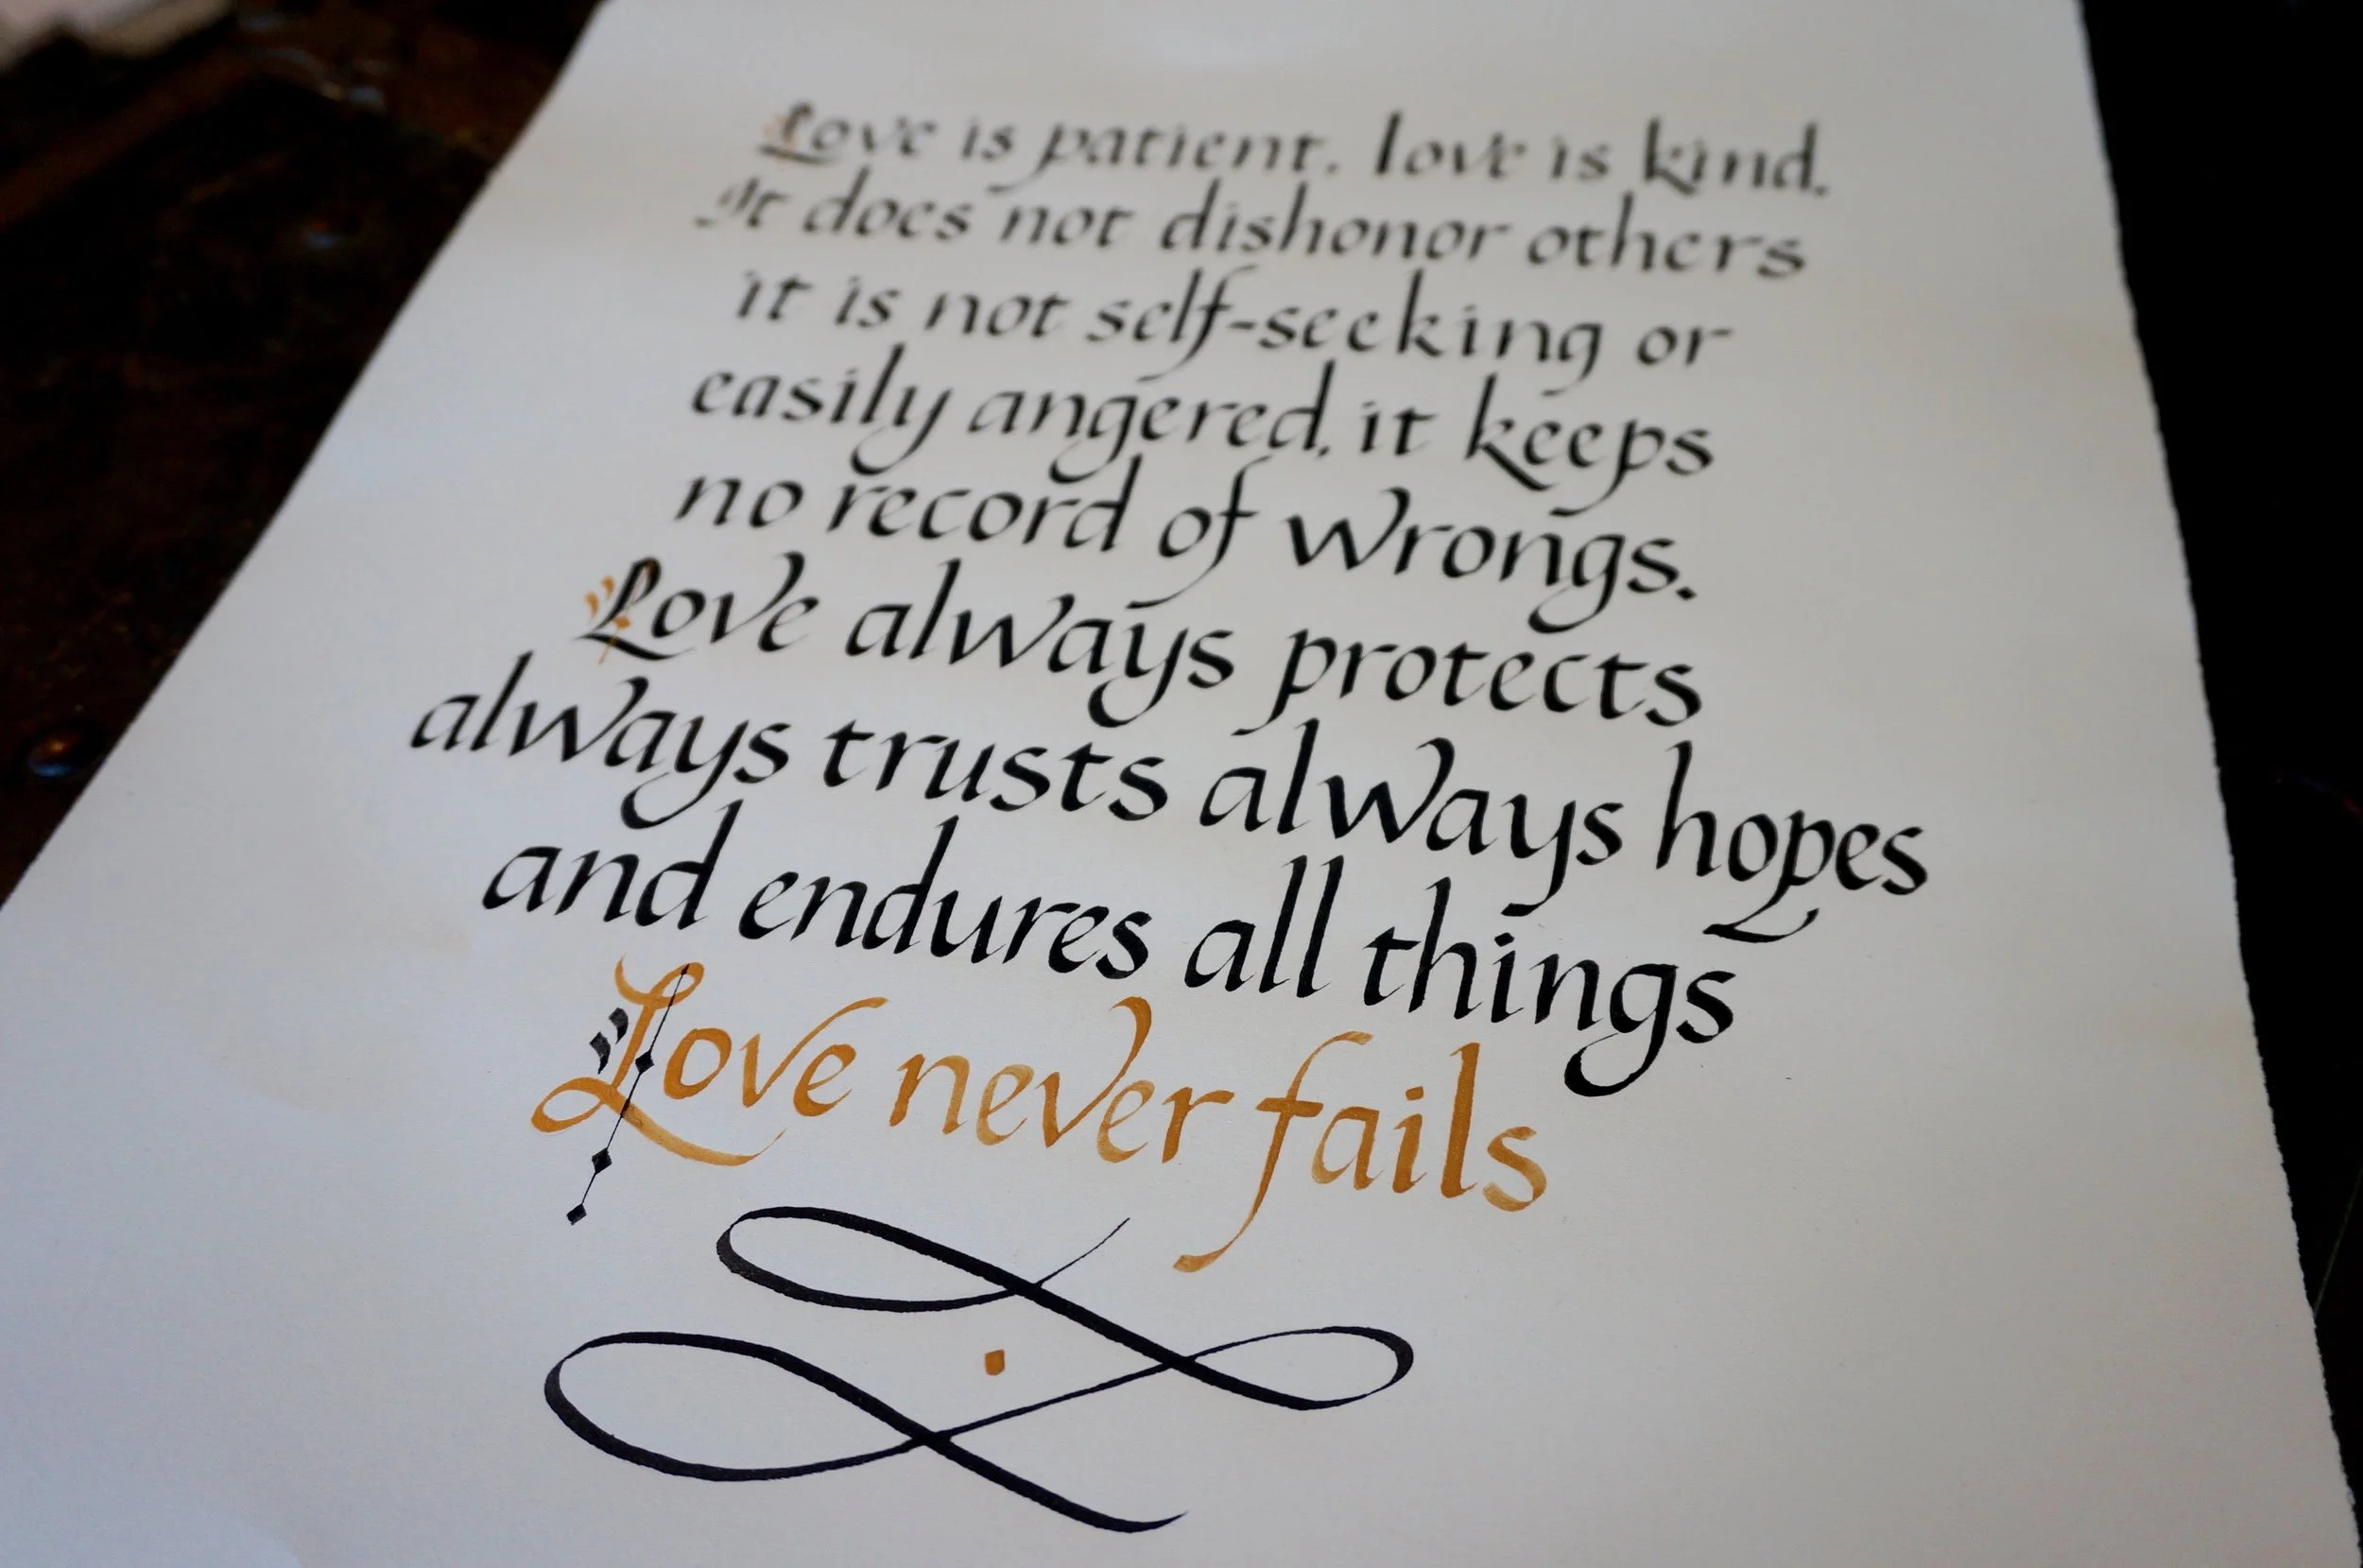 Love is patient. love is kind.
It does not dishonor others
it is not self-seeking or
easily angered, it keeps
no record of wrongs.
Love always protects
always trusts always hopes
and endures all things
Love never fails